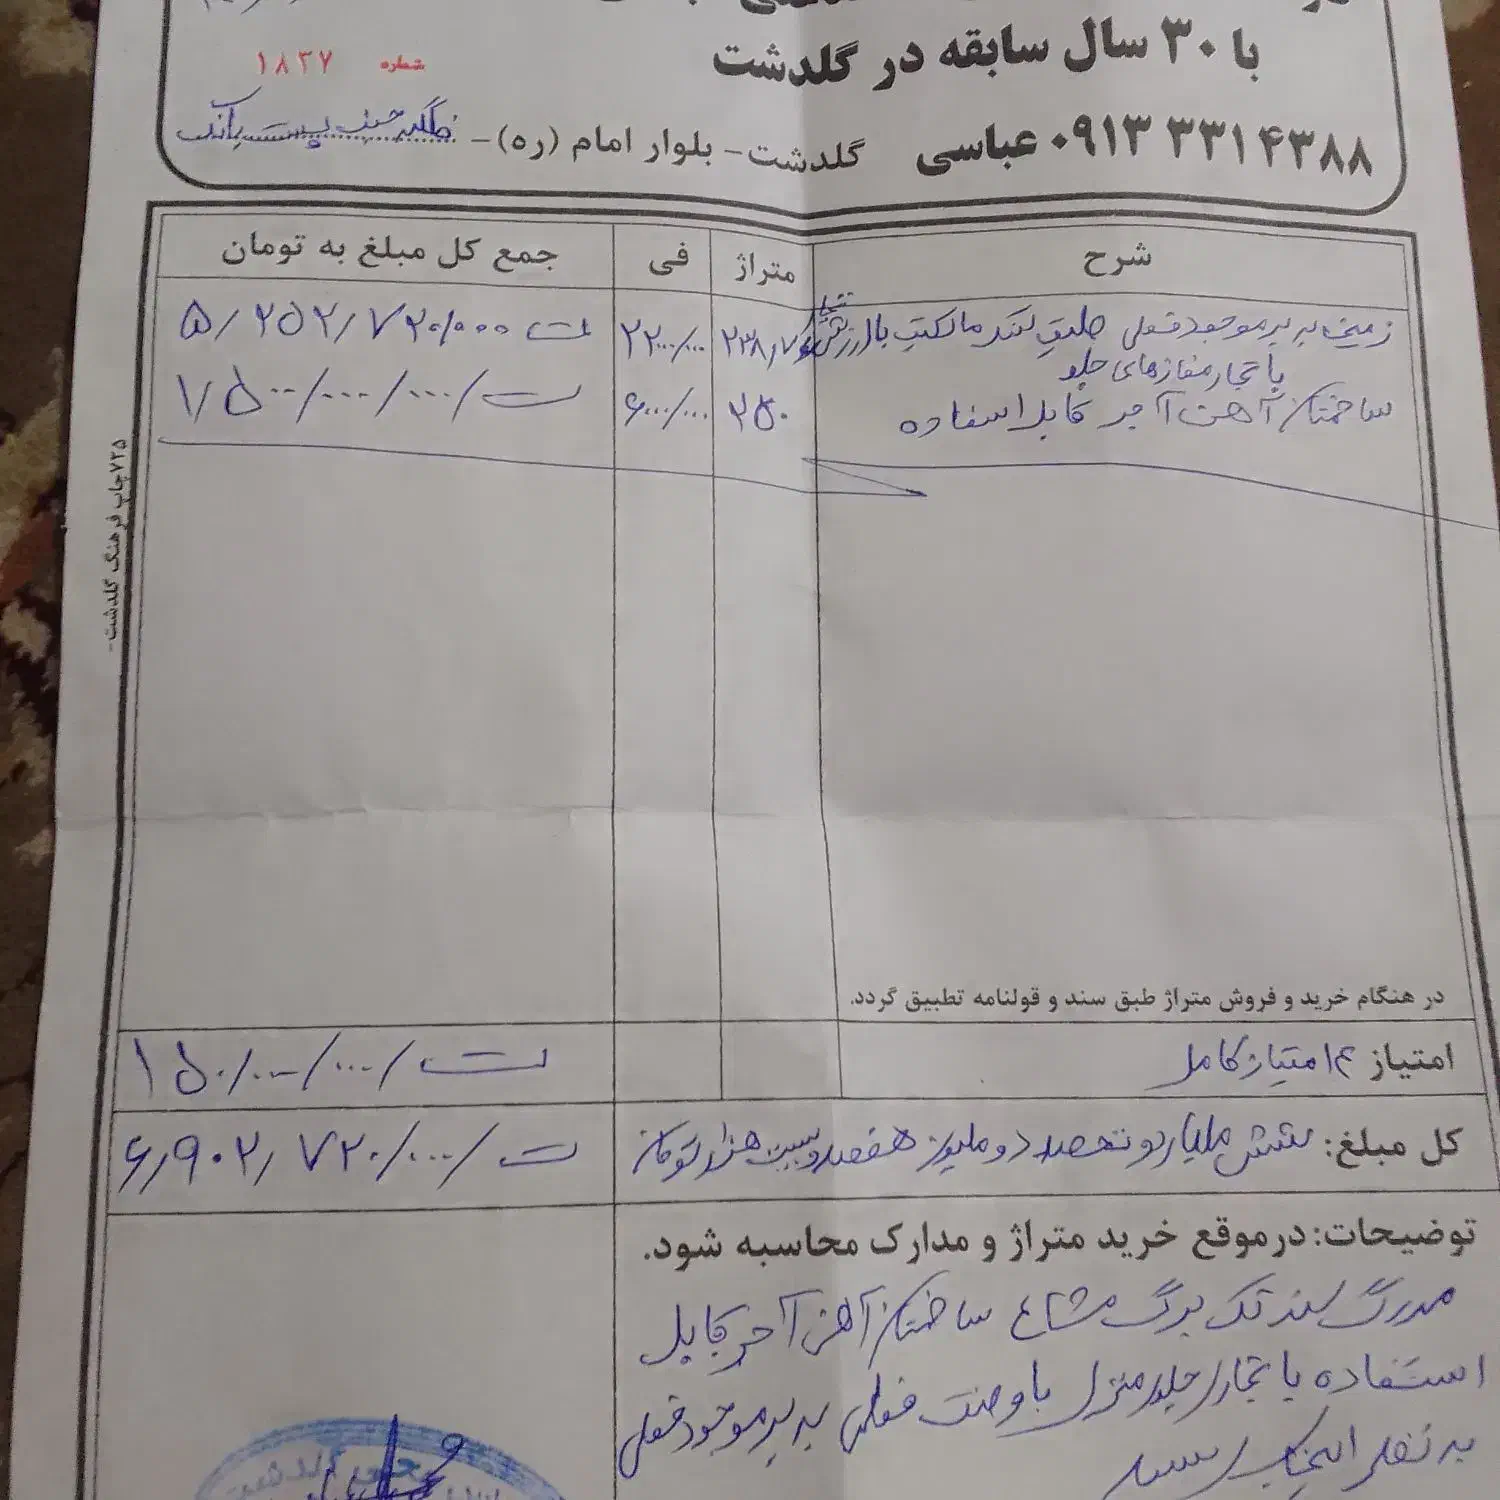 با ۳۰ سال سابقه در گلدشت
شماره ۱۸۳۷
۰۹۱۳ ۳۳۱۴۳۸۸ عباسی گلدشت - بلوار امام (ره) - پست بانک
شرح متراژ فی جمع کل مبلغ به تومان
زمین به بر موجود فعلی طبق سند مالکیت با ارزش ۲۳۸٫۷۶ ۲۲۰۰۰/۰۰۰ ۵/۲۵۲/۷۲۰/۰۰۰ ت
با تجار مغازهای جلو
ساختمان آهن آجر قابل استفاده ۲۵۰ ۶۰۰۰/۰۰۰ ۱/۵۰۰/۰۰۰/۰۰۰/ ت
۷۳۵ چاپ فرهنگ گلدشت -
در هنگام خرید و فروش متراژ طبق سند و قولنامه تطبیق گردد.
امتیاز ۴ امتیاز کامل ۱۵۰/۰۰۰/۰۰۰/ ت
کل مبلغ: شش میلیارد و نهصد دو ملیون هفصد و بیست هزار تومان ۶/۹۰۲/۷۲۰/۰۰۰/ ت
توضیحات: درموقع خرید متراژ و مدارک محاسبه شود.
مدرک سند تک برگ مشاع ساختمان آهن آجر قابل
استفاده با تجاری جلو منزل با وضعیت فعلی به بر موجود فعلی
به نظر اینجانب رسید
گلدشت